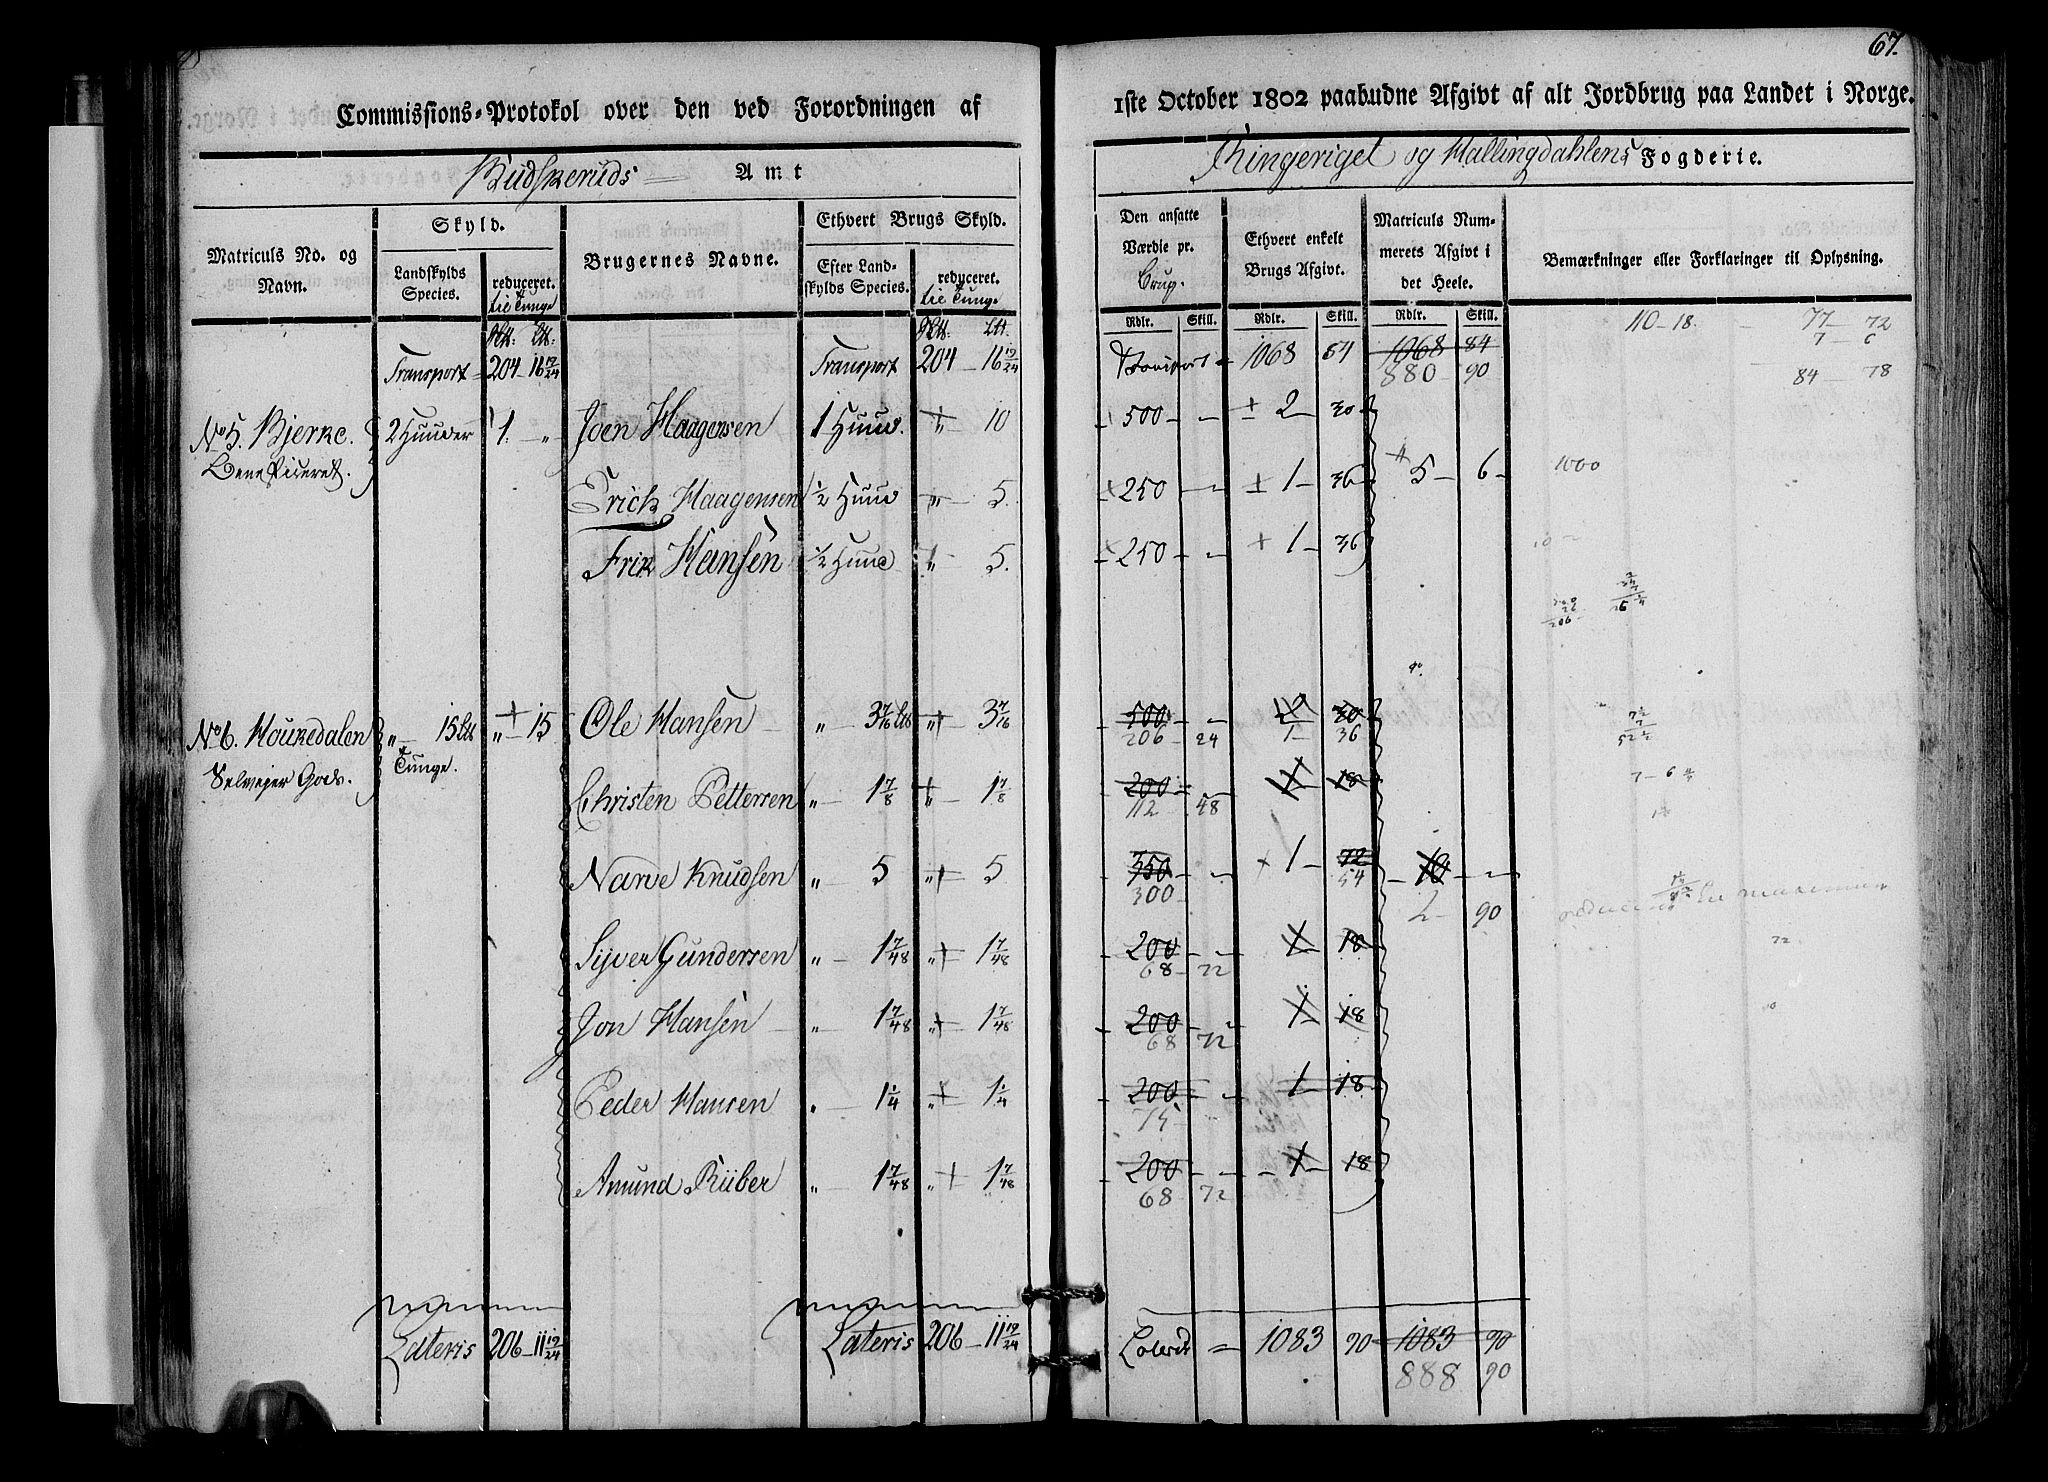 67.
Commissions-Protokol over den ved Forordningen af 1ste October 1802 paabudne Afgivt af alt Jordbrug paa Landet i Norge.
Budskeruds Amt Ringeriget og Hallingdahlens Fogderie.
Matriculs No. og Navn. Skyld. Landskylds Species. reduceret. til Tunge Brugernes Navne. Ethvert Brugs Skyld. Efter Landskylds Species. reduceret. til Tunge
Den ansatte Værdie pr. Brug. Ethvert enkelt Brugs Afgivt. Matriculs Nummerets Afgivt i det Heele. Bemærkninger eller Forklaringer til Oplysning.
Rdlr. Skill. Rdlr. Skill. Rdlr. Skill.
Transport 204 - 16 19/24 Transport 204 - 16 19/24 Transport = 1068 54 1068 84
880 - 90
110 - 18. 77 - 72
7 - 6
84 - 78
No 5. Bjerke. 2 Huuder 1. - „ Joen Haagensen 1 Huud. „ - 10 500 - - 2 - 30
Beneficeret.
Erich Haagensen 1/2 Huud „ - 5. 250 - 1 - 36 5 - 6 - 1000
Erik Hansen 1/2 Huud „ - 5. 250 - - 1 - 36
No 6. Houredalen „ - 15 Lb „ - 15 Ole Hansen - „ - 3 7/16 Lb „ - 3 7/16 500 - - 2 30
Selveyer Gods. Tunge. 206 - 24 1 - 36
Christen Pettersen „ - 1 7/8 „ - 1 7/8 200 - - 1 18
112 - 48
7 - 6
Narve Knudsen „ - 5 „ - 5 550 - - 1 - 72 - 10 - -
300 - 54 2 - 90
Sijver Gundersen „ - 1 7/48 „ - 1 7/48 200 - - 1 - 18
68 - 72
72
Jon Hansen - „ - 1 7/48 „ - 1 7/48 200 - - 1 - 18
68 72
Peder Hansen „ - 1 1/4 „ - 1 1/4 200 - - 1 - 18
75 -
Amund Riiber „ - 1 7/48 „ - 1 7/48 200 - - 1 - 18
68 - 72
Lateris 206 - 11 19/24 Lateris 206 - 11 19/24 Lateris = 1083 90 - 1083 90
888 90